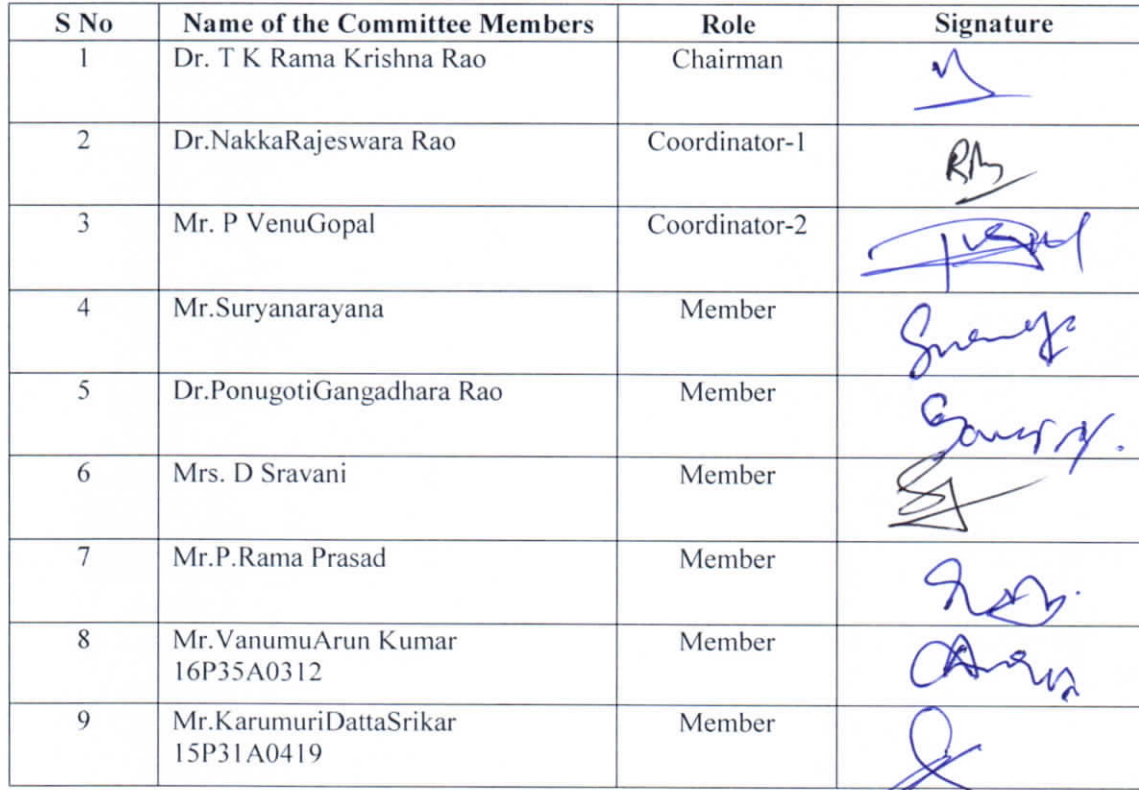 S No Name of the Committee Members Role Signature
1 Dr. T K Rama Krishna Rao Chairman
2 Dr.NakkaRajeswara Rao Coordinator-1
3 Mr. P VenuGopal Coordinator-2
4 Mr.Suryanarayana Member
5 Dr.PonugotiGangadhara Rao Member
6 Mrs. D Sravani Member
7 Mr.P.Rama Prasad Member
8 Mr.VanumuArun Kumar Member
16P35A0312
9 Mr.KarumuriDattaSrikar Member
15P31A0419